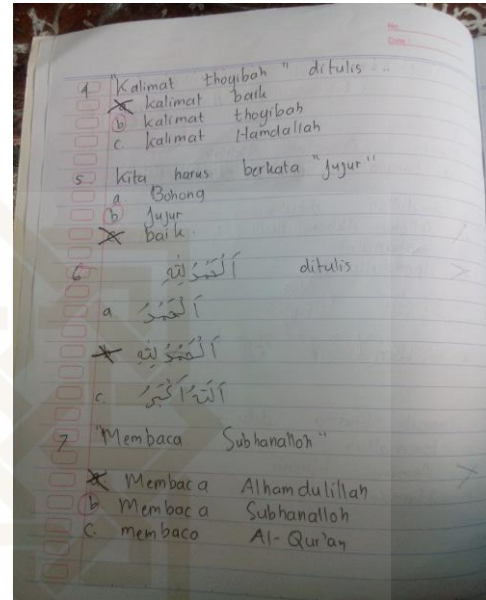 No.
Date:
4 "Kalimat thoyibah" ditulis ..
a kalimat baik
b kalimat thoyibah
c. kalimat Hamdallah
5. kita harus berkata "Jujur"
a Bohong
b Jujur
c baik.
6 اَلْحَمْدُ لِلّٰهِ ditulis
a اَلْحَمْدُ
b اَلْحَمْدُ لِلّٰهِ
c. اَللّٰهُ اَكْبَرُ
7 "Membaca Subhanalloh"
a Membaca Alhamdulillah
b Membaca Subhanalloh
c. membaca Al-Qur'an